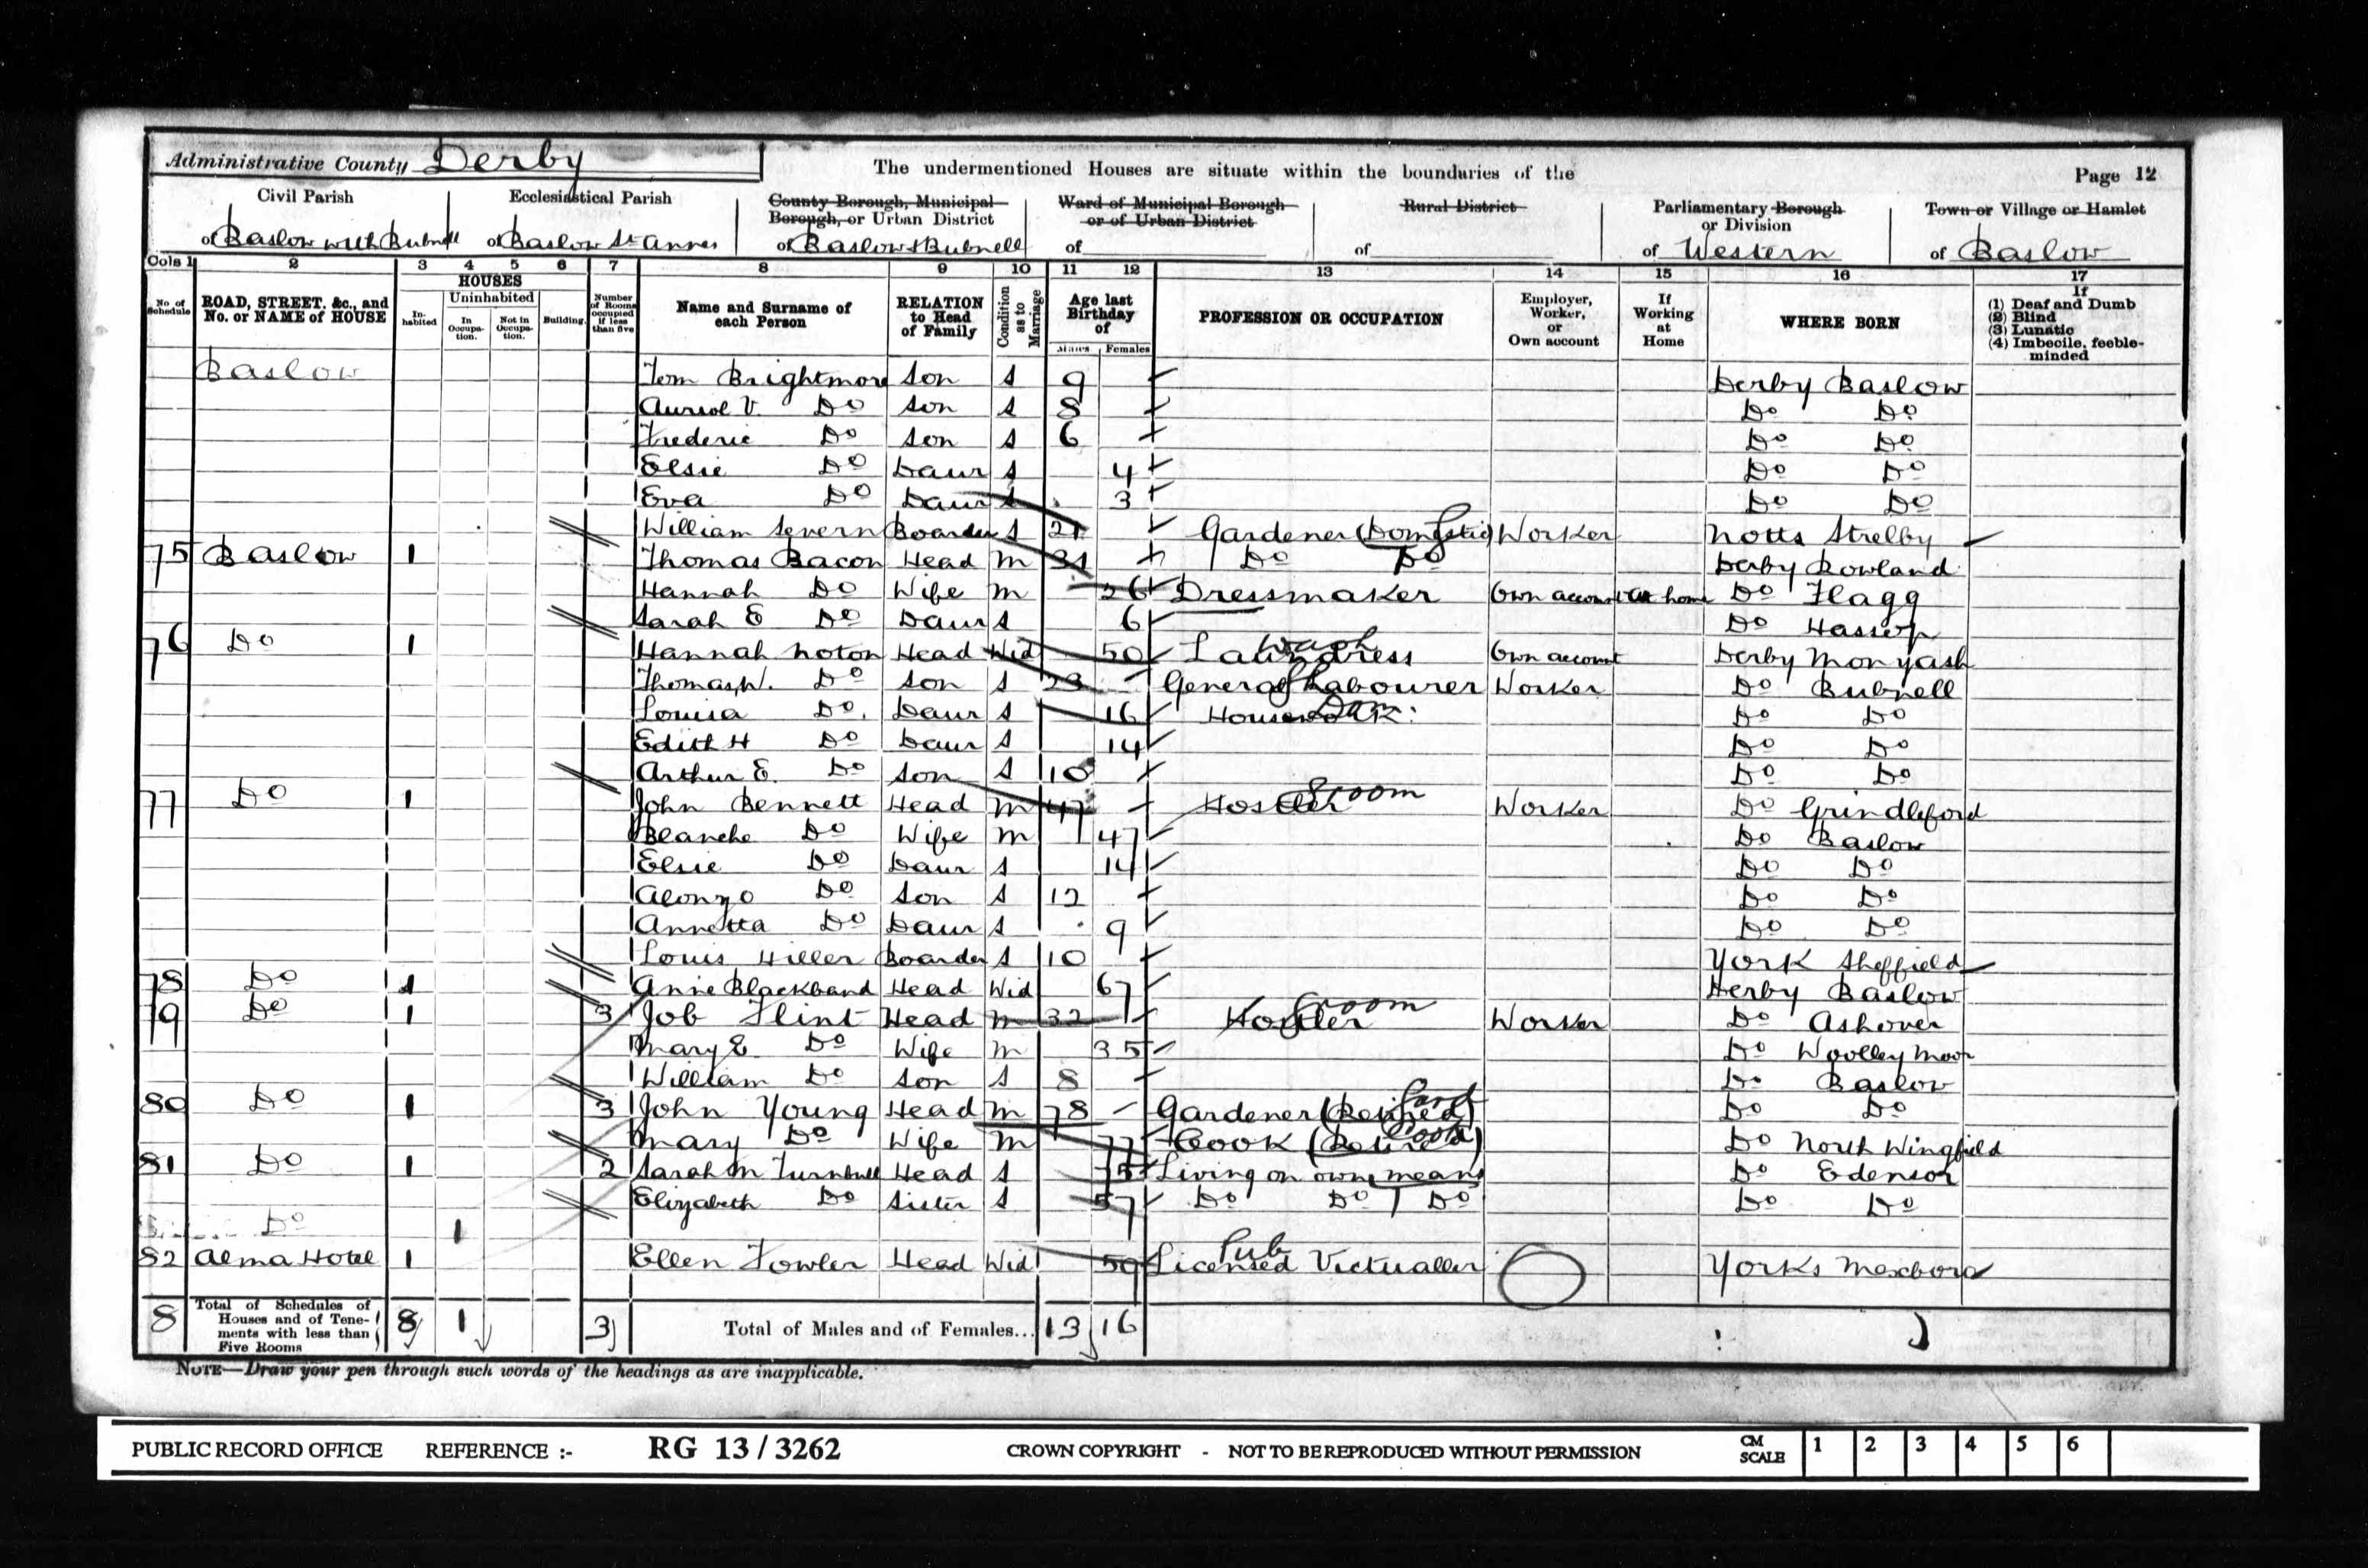 Administrative County Derby
The undermentioned Houses are situate within the boundaries of the
Page 12
Civil Parish
Ecclesiastical Parish
County Borough, Municipal Borough, or Urban District
Ward of Municipal Borough or of Urban District
Rural District
Parliamentary Borough or Division
Town or Village or Hamlet
of Baslow with Bubnell of Baslow St Annes of Baslow & Bubnell of of of Western of Baslow
Cols 1 2 3 4 5 6 7 8 9 10 11 12 13 14 15 16 17
No. of Schedule
ROAD, STREET, &c., and No. or NAME of HOUSE
HOUSES
Inhabited
Uninhabited
In Occupation.
Not in Occupation.
Building.
Number of Rooms occupied if less than five
Name and Surname of each Person
RELATION to Head of Family
Condition as to Marriage
Age last Birthday of
Males Females
PROFESSION OR OCCUPATION
Employer, Worker, or Own account
If Working at Home
WHERE BORN
If
(1) Deaf and Dumb
(2) Blind
(3) Lunatic
(4) Imbecile, feeble-minded
Baslow Tom Brightmore Son S 9 Derby Baslow
Auriol V. Do Son S 8 Do Do
Frederic Do Son S 6 Do Do
Elsie Do Daur S 4 Do Do
Eva Do Daur S 3 Do Do
William Severn Boarder S 21 Gardener (Domestic) Worker Notts Strelby
75 Baslow 1 Thomas Bacon Head M 31 Do Do Derby Rowland
Hannah Do Wife M 26 Dressmaker Own account at home Do Flagg
Sarah E Do Daur S 6 Do Hassop
76 Do 1 Hannah Noton Head Wid 50 Laundress Wash Own account Derby Monyash
Thomas W. Do Son S 23 General Labourer Worker Do Bubnell
Louisa Do. Daur S 16 Housework Dom: Do Do
Edith H Do Daur S 14 Do Do
Arthur E. Do Son S 10 Do Do
77 Do 1 John Bennett Head M 47 Hostler Groom Worker Do Grindleford
Blanche Do Wife M 47 Do Baslow
Elsie Do Daur S 14 Do Do
Alonzo Do Son S 12 Do Do
Annetta Do Daur S 9 Do Do
Louis Hiller Boarder S 10 York Sheffield
78 Do 1 Anne Blackband Head Wid 67 Derby Baslow
79 Do 1 3 Job Flint Head M 32 Hostler Groom Worker Do Ashover
Mary E Do Wife M 35 Do Woolley Moor
William Do Son S 8 Do Baslow
80 Do 1 3 John Young Head M 78 Gardener (Retired) Gard Do Do
Mary Do Wife M 77 Cook (Retired) Cook Do North Wingfield
81 Do 1 2 Sarah M Turnbull Head S 75 Living on own means Do Edensor
Elizabeth Do Sister S 57 Do Do Do Do Do
Do 1
82 Alma Hotel 1 Ellen Fowler Head Wid 59 Licensed Victualler Pub Yorks Mexboro
8 Total of Schedules of Houses and of Tenements with less than Five Rooms 8 1 3 Total of Males and of Females... 13 16
NOTE—Draw your pen through such words of the headings as are inapplicable.
PUBLIC RECORD OFFICE REFERENCE :- RG 13 / 3262 CROWN COPYRIGHT - NOT TO BE REPRODUCED WITHOUT PERMISSION CM SCALE 1 2 3 4 5 6